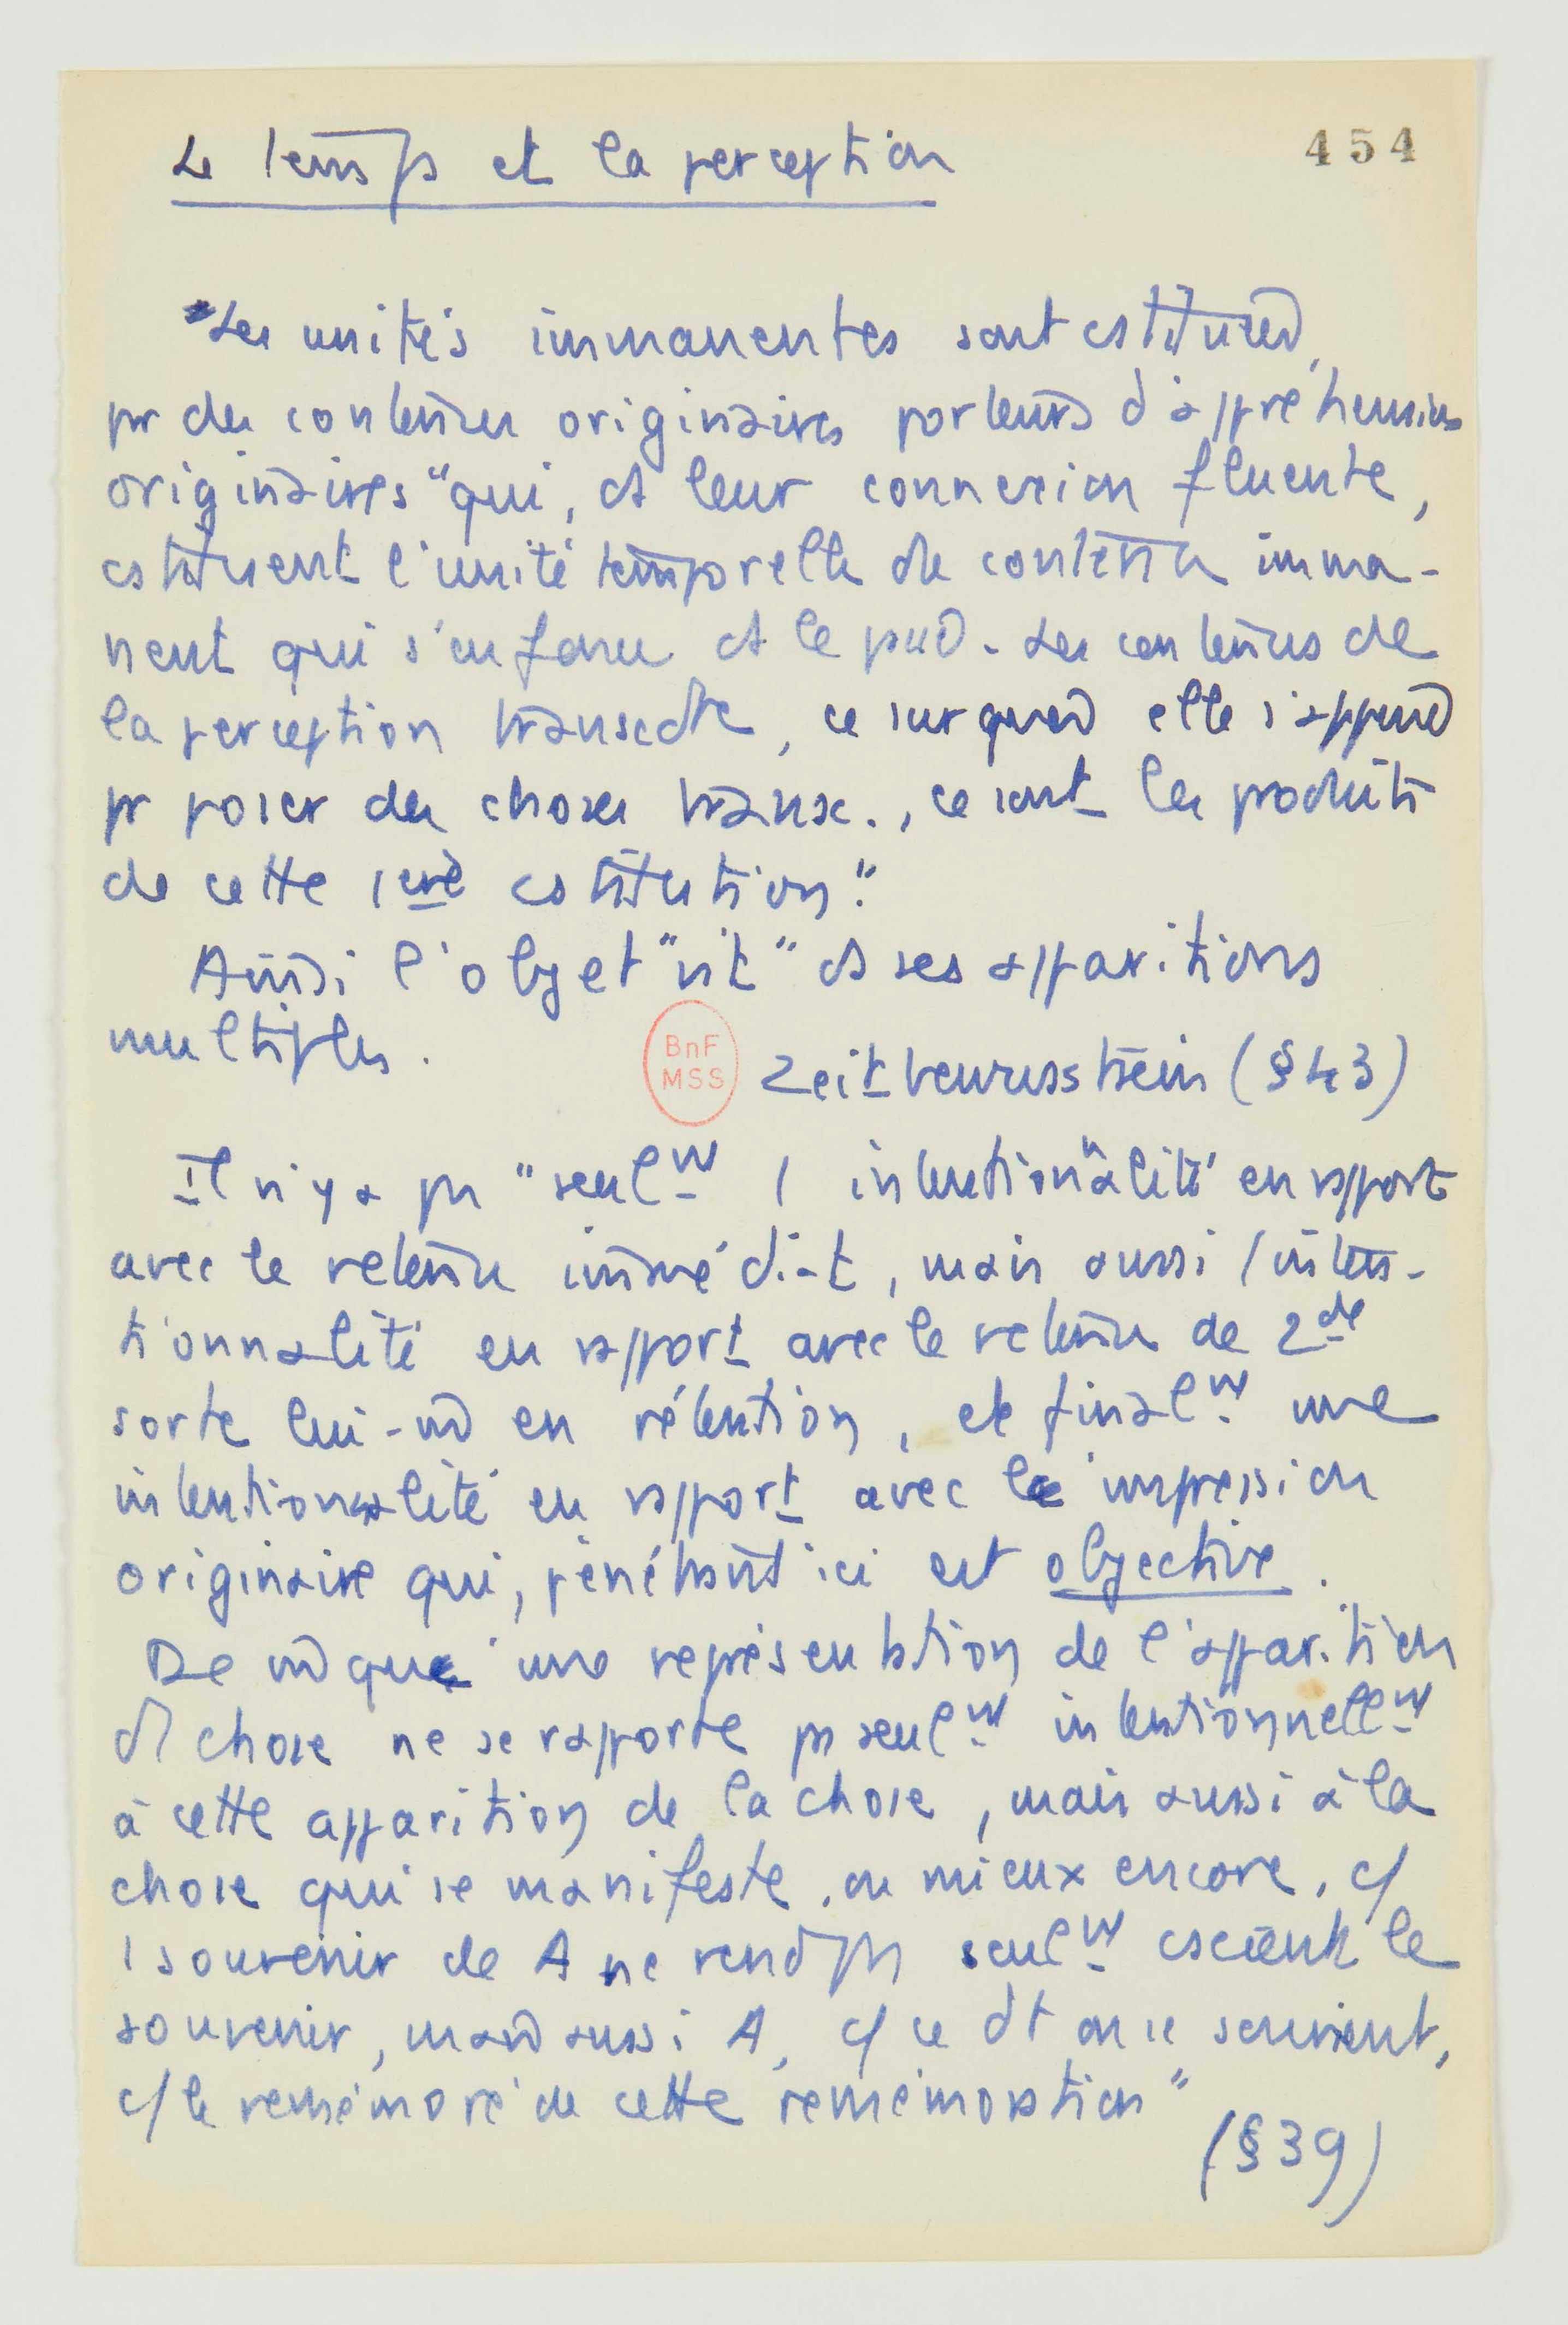 Le temps et la perception
454
"Les unités immanentes sont cstituées
par des contenus originaires porteurs d'appréhensions
originaires "qui, ds leur connexion fluente,
cstituent l'unité temporelle de contenu imma-
nent qui s'enfonce ds le passé. Les contenus de
la perception transcdte, ce sur quoi elle s'appuie
pr poser des choses transc., ce sont les produits
de cette 1ere cstitution".
Ainsi l'objet "vit" ds ses apparitions
multiples.
BnF
MSS
Zeitbewusstsein (§43)
Il n'y a pas "seulnt 1 intentionnalité en rapport
avec le retenu immédiat, mais aussi 1 inten-
tionnalité en rapport avec le retenu de 2de
sorte lui-mm en rétention, et finalnt une
intentionnalité en rapport avec l'impression
originaire qui, pénétrant ici est objective.
De mm qu'une représentation de l'apparition
de chose ne se rapporte pas seulnt intentionnellnt
à cette apparition de la chose, mais aussi à la
chose qui se manifeste, ou mieux encore, c/
1 souvenir de A ne rend pas seulnt csciente le
souvenir, mais aussi A, c/ ce dt on se souvient,
c/ le remémoré de cette remémoration"
(§39)